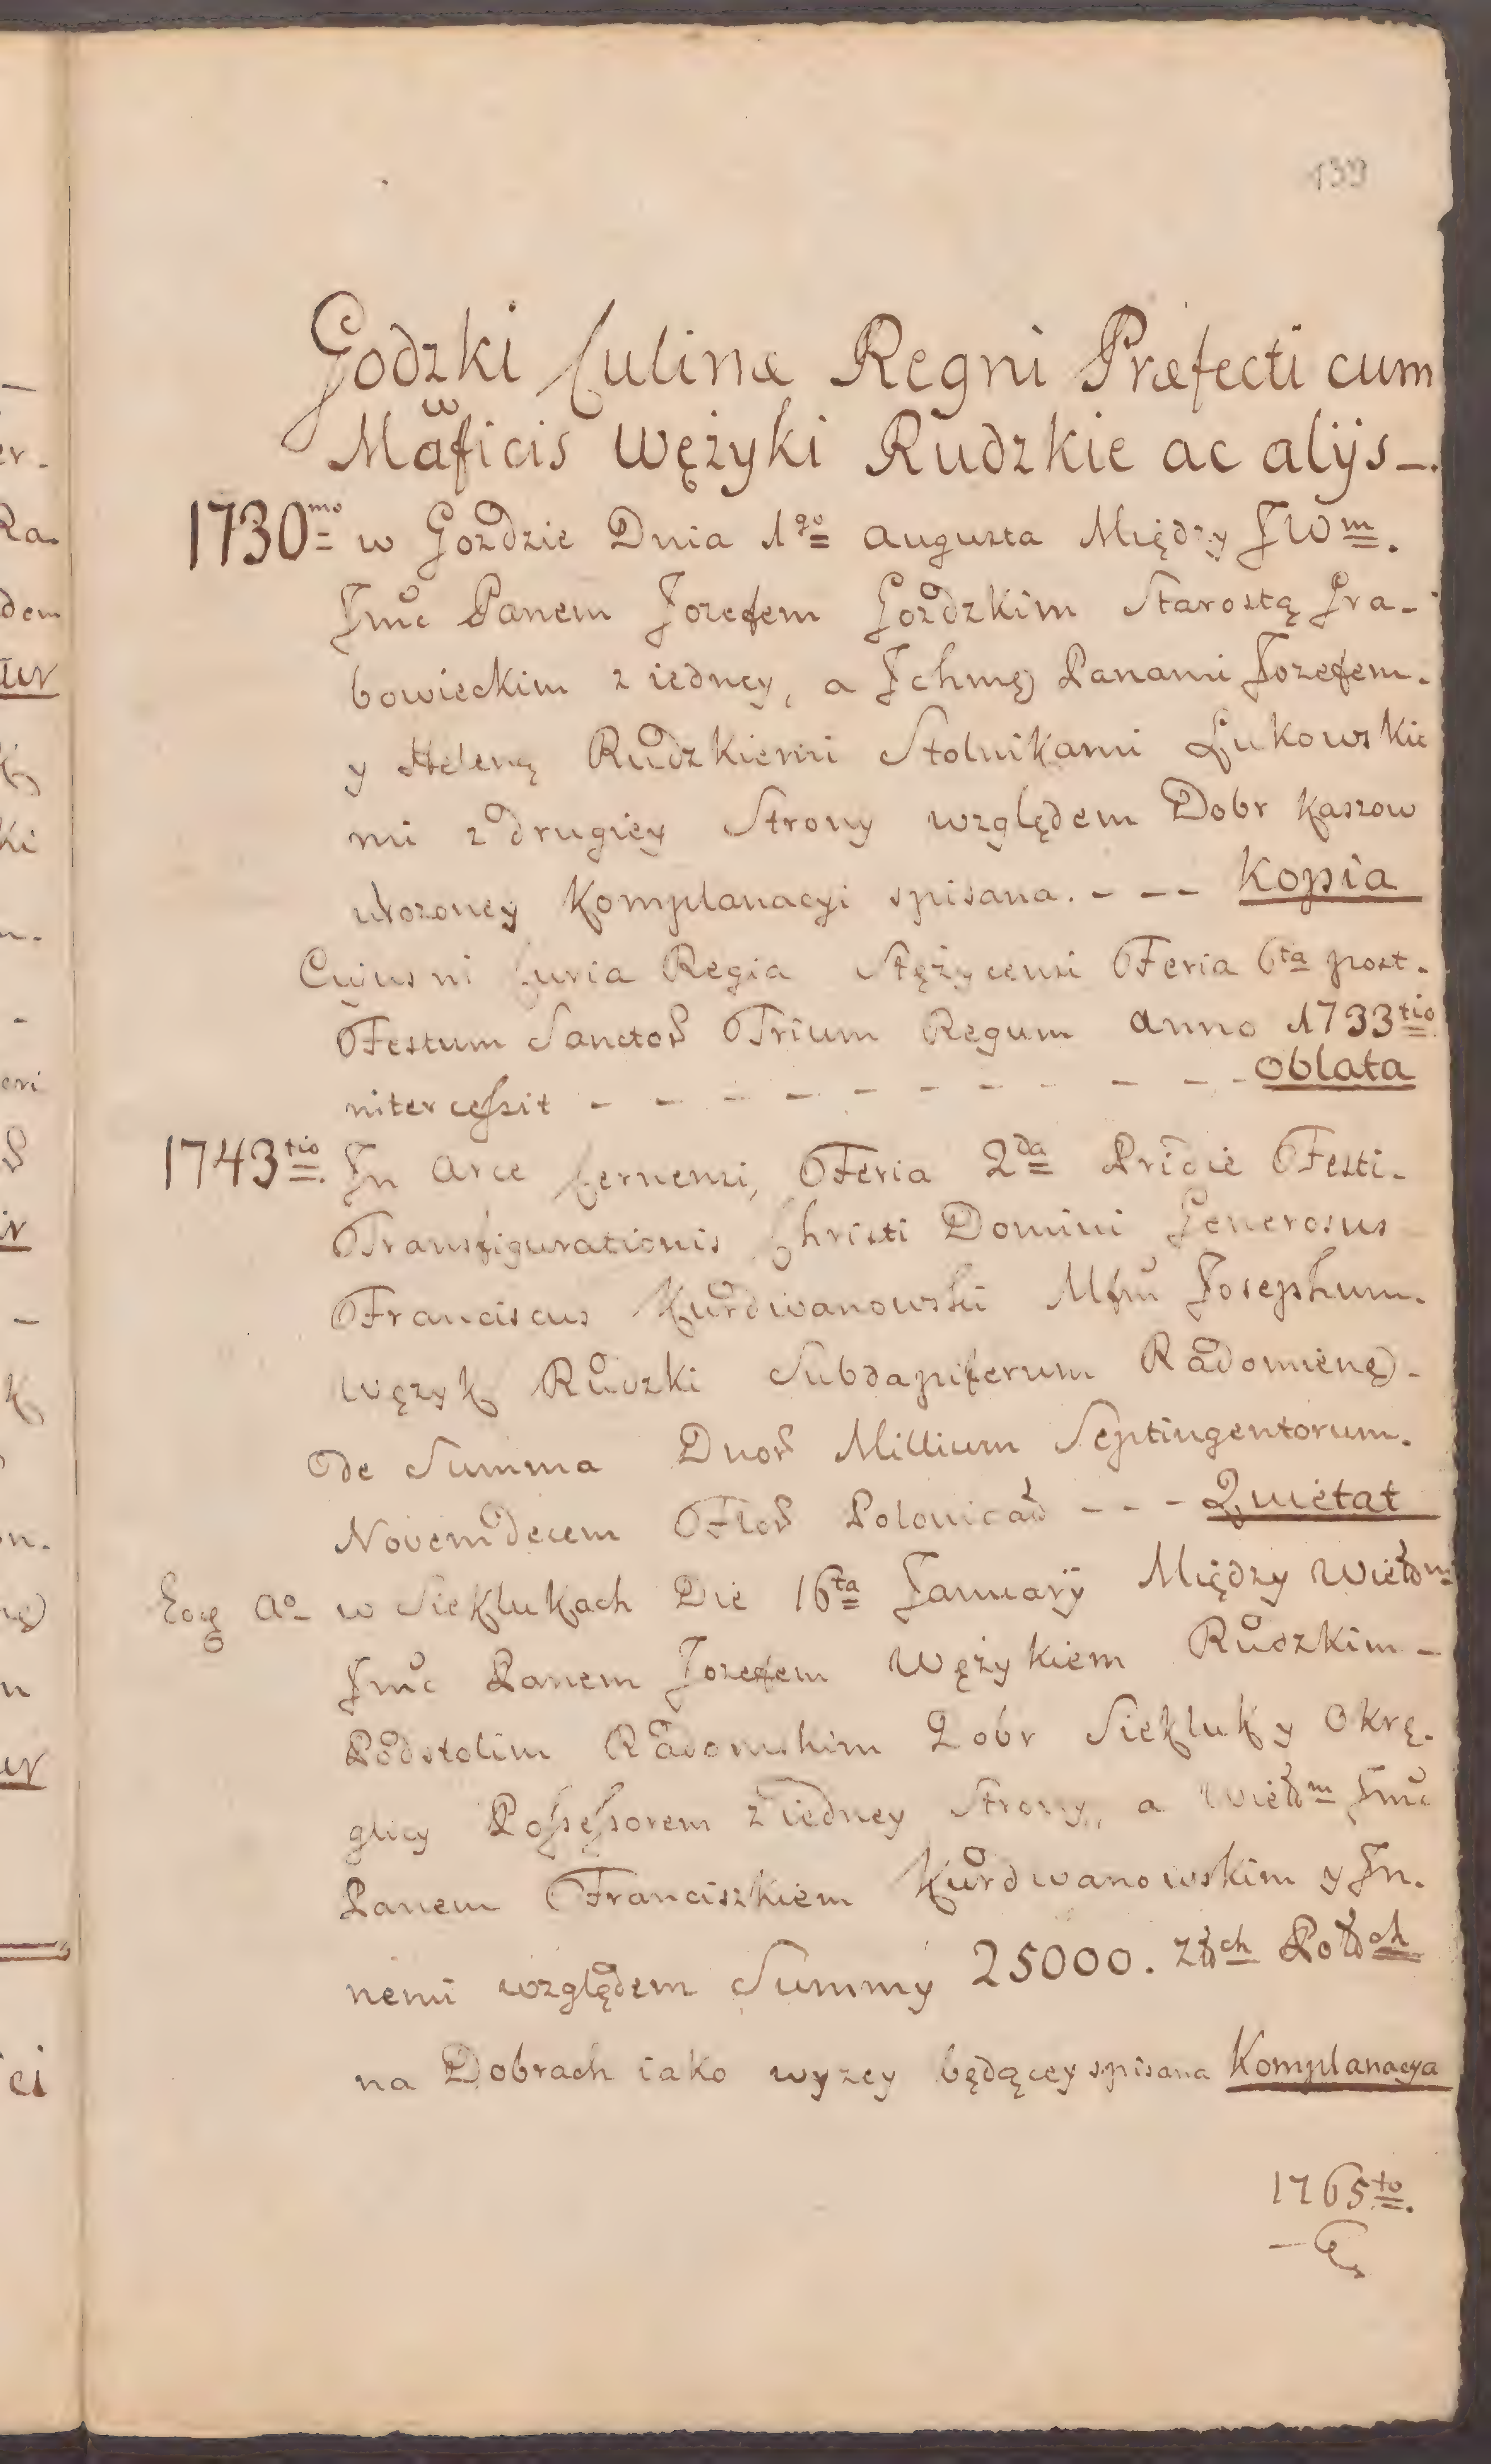 139
Godzki Culinæ Regni Præfecti cum
Mãficis Wężyki Rudzkie ac alijs_.
1730mo w Gozdzie Dnia 1go augusta Między JWm.
Jmć Panem Jozefem Gozdzkim Starostą Gra-
bowieckim z iedney, a Ichmę Panami Jozefem.
y Heleną Rudzkiemi Stolnikami Łukowskie
mi z drugiey Strony względem Dobr Kaszow
ułozoney Komplanacyi spisana. - -- Kopia
Cujus ni Curia Regia Stężycensi Feria 6ta post.
Festum Sanctor Trium Regum anno 1733tio
nitercessit - - - - - - - - - - Oblata
1743tio. In Arce Cernensi, Feria 2da Pridie Festi-
Transfigurationis Christi Domini Generosus
Franciscus Kurdwanowski Mfm Josephum.
Węzyk Rudzki Subdapiferum Radomienę-
de Summa Duor Millium Septingentorum.
Novemdecem Flor Polonical --- Quietat
Eoę Ao w Sieklukach Die 16ta January Między Wielm
Jmć Panem Jozefem Wężykiem Rudzkim -
Podstolim Radomskim Dobr Siekluk y Okrę-
glicy Possessorem z iedney Strony, a Wielm Jmć
Panem Franciszkiem Kurdwanowskim y In.
nemi względem Summy 25000. Złch Polch
na Dobrach iako wyzey będącey spisana Komplanacya
1765to.